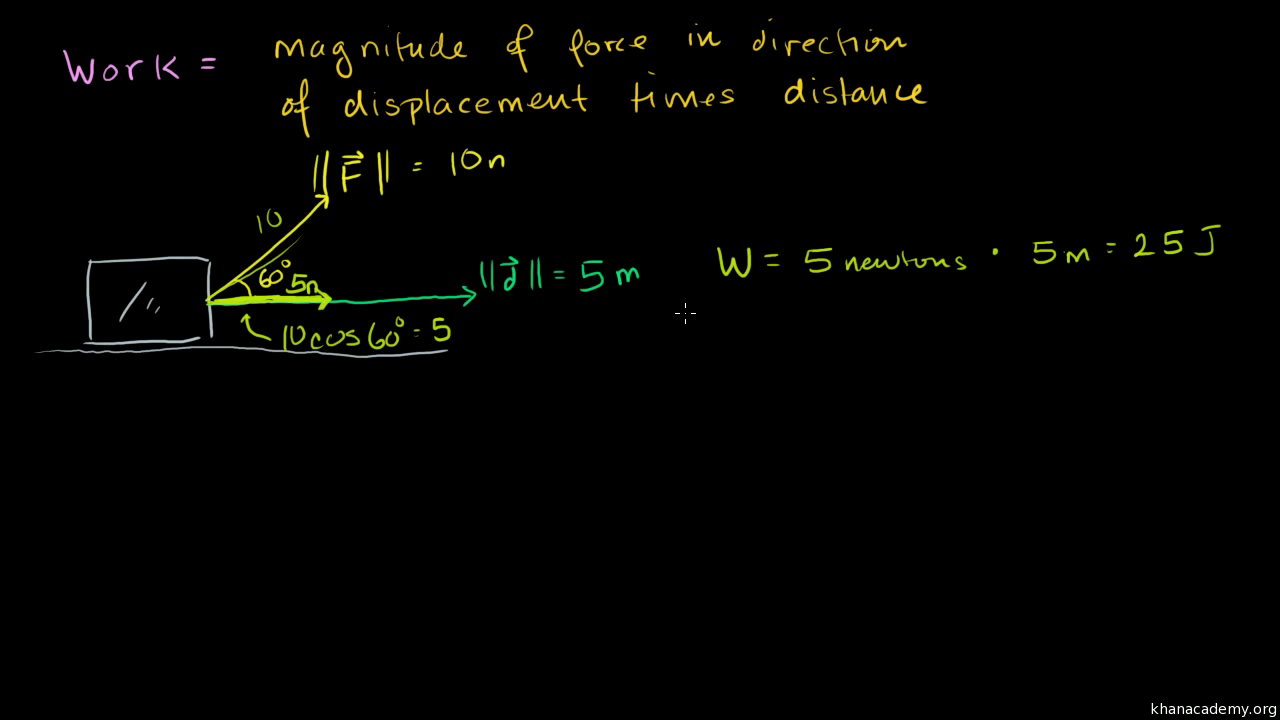 Work = magnitude of force in direction
of displacement times distance
||F⃗|| = 10n
10
60° 5n
||d⃗|| = 5m
10cos60° = 5
W = 5 newtons · 5m = 25 J
khanacademy.org